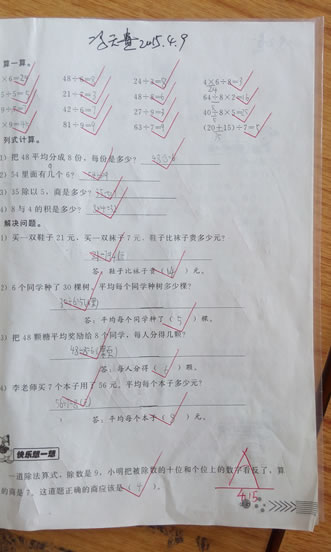 2015.4.9
算一算。
48÷6=8 24÷3=8 4×6÷8=3
21÷7=3 64÷8×2=16
42÷6=7 27÷9=3 40÷8×5=25
81÷9=9 63÷7=9 (20+15)÷7=5
列式计算。
1) 把 48 平均分成 8 份，每份是多少？ 48÷8=6
2) 54 里面有几个 6？ 54÷6=9
3) 35 除以 5，商是多少？
4) 8 与 4 的积是多少？ 8×4=32
解决问题。
1) 买一双鞋子 21 元，买一双袜子 7 元，鞋子比袜子贵多少元？
答：鞋子比袜子贵（14）元。
2) 6 个同学种了 30 棵树，平均每个同学种树多少棵？
答：平均每个同学种了（5）棵。
3) 把 48 颗糖平均奖励给 8 个同学，每人分得几颗？
48÷8=6(颗)
答：每人分得（6）颗。
4) 李老师买 7 个本子用了 56 元，平均每个本子多少元？
56÷7=8(元)
答：平均每个本子（8）元。
快乐想一想
一道除法算式，除数是 9，小明把被除数的十位和个位上的数字看反了，算
的商是 3。这道题正确的商应该是（8）。
A
4.15